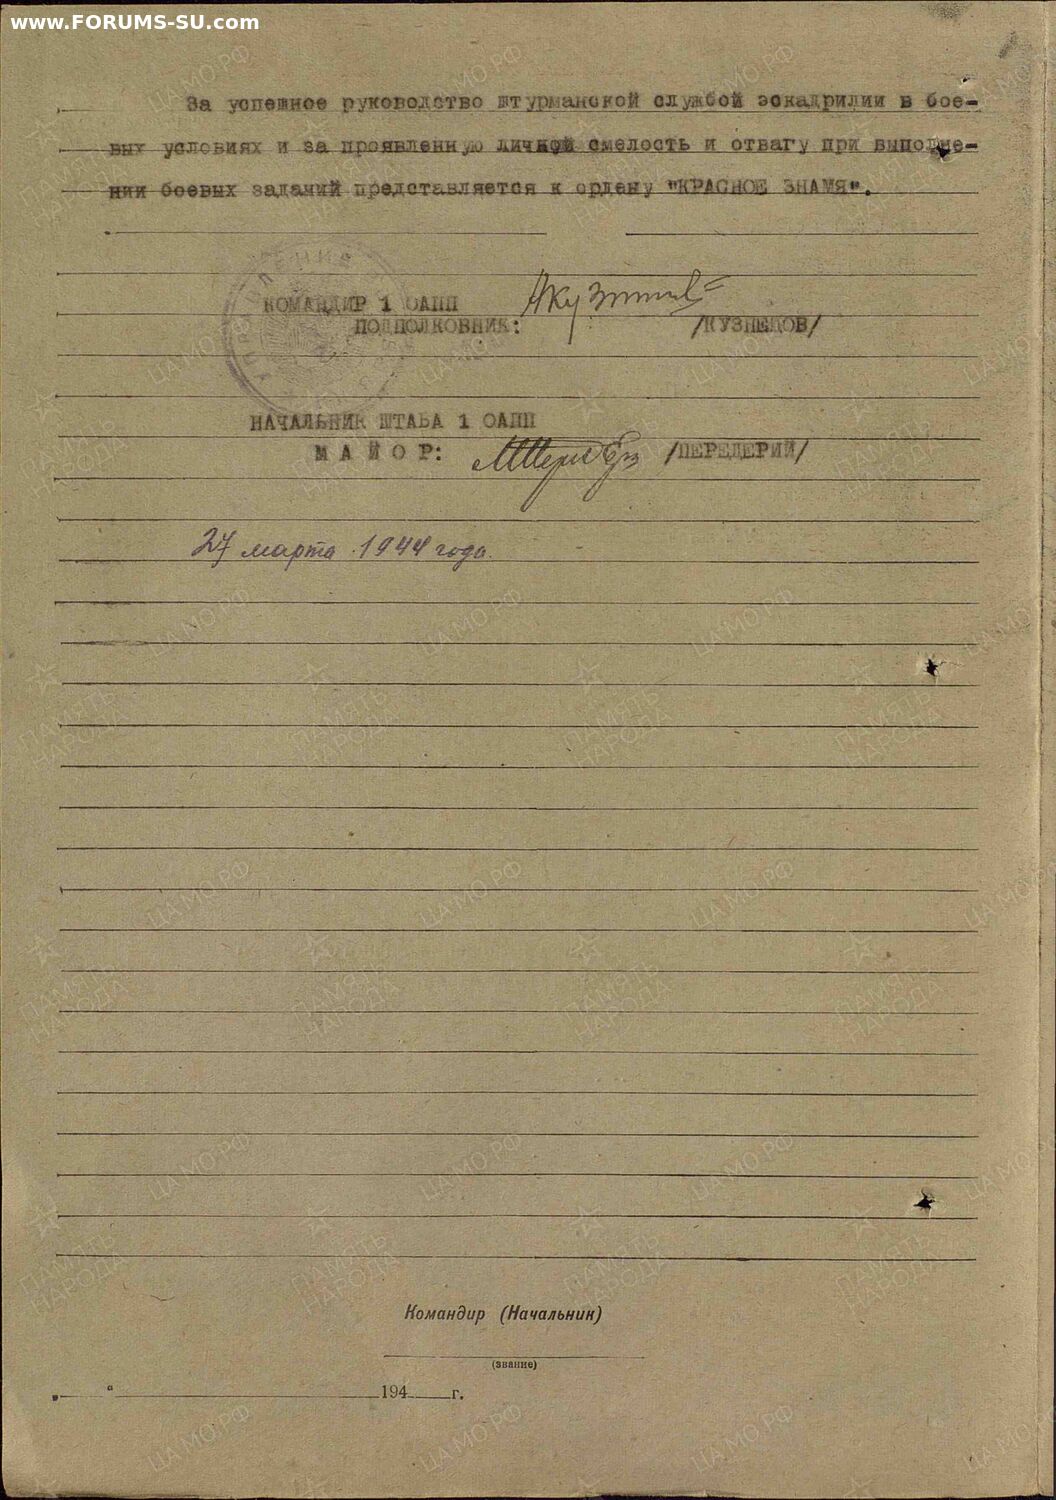 www.FORUMS-SU.com
За успешное руководство штурманской службой эскадрилии в бое-
вых условиях и за проявленную личную смелость и отвагу при выполне-
нии боевых заданий представляется к ордену "КРАСНОЕ ЗНАМЯ".
КОМАНДИР 1 ОАПП
ПОДПОЛКОВНИК: /КУЗНЕЦОВ/
НАЧАЛЬНИК ШТАБА 1 ОАПП
МАЙОР: /ПЕРЕДЕРИЙ/
27 марта 1944 года.
Командир (Начальник)
(звание)
„ “ 194 г.
ЦАМО.РФ
ПАМЯТЬ
НАРОДА